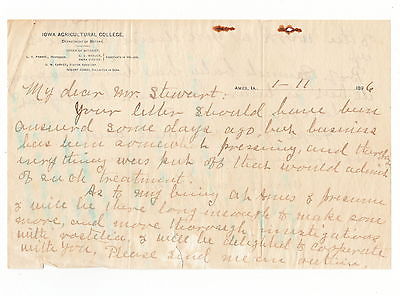 IOWA AGRICULTURAL COLLEGE.
DEPARTMENT OF BOTANY.
AMES, IA. 1-11 1896
My dear Mr. Stewart:
Your letter should have been
answered some days ago, but business
has been somewhat pressing, and therefore
everything was put off that would admit
of such treatment.
As to my being at Ames I presume
I will be here long enough to make some
more, and more thorough investigations
with rostelia, I will be delighted to cooperate
with you, Please send me